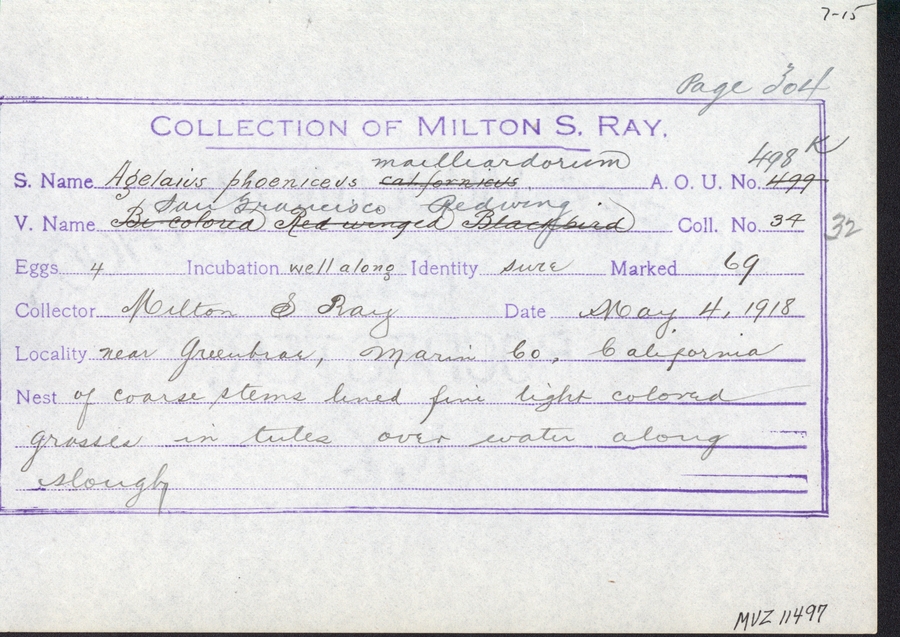 7-15
Page 304
COLLECTION OF MILTON S. RAY.
mailliardorum 498 K
S. Name Agelaius phoeniceus californicus. A. O. U. No. 499
San Francisco Redwing
V. Name Bi colored Red winged Blackbird Coll. No. 34 32
Eggs 4 Incubation well along Identity sure Marked 69
Collector Milton S Ray Date May 4, 1918
Locality near Greenbrae, Marin Co, California
Nest of coarse stems lined fine light colored
grasses in tules over water along
slough
MVZ 11497